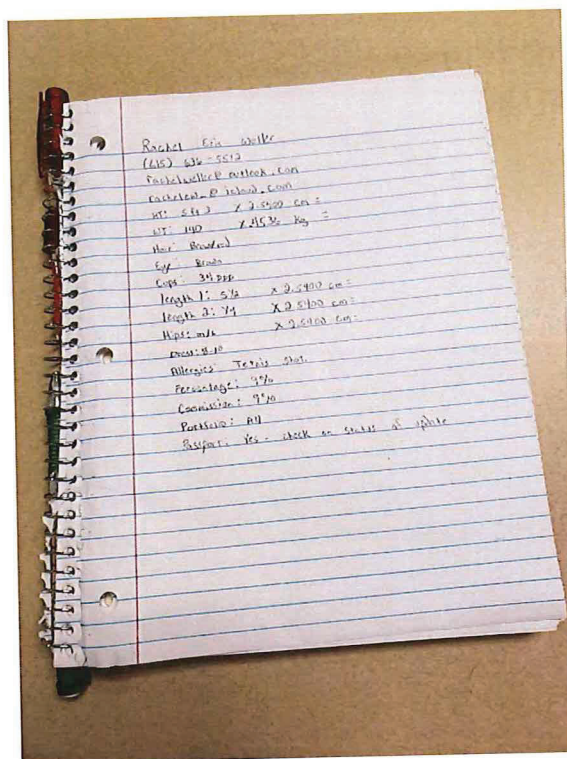 Rachel Erin Weller
(615) 636-5512
rachelweller@outlook.com
rachelew_@icloud.com
HT: X 2.5400 cm =
WT: 140 X .4536 kg =
Hair: Brown
Eye: Brown
Cups: 34 DDD
length 1: 5 1/2 X 2.5400 cm =
length 2: X 2.5400 cm =
Hips: m/h X 2.5400 cm =
Dress: 8-10
Allergies: Shot
Percentage: 9%
Commission: 9%
Portfolio: All
Passport: Yes - check on status of update